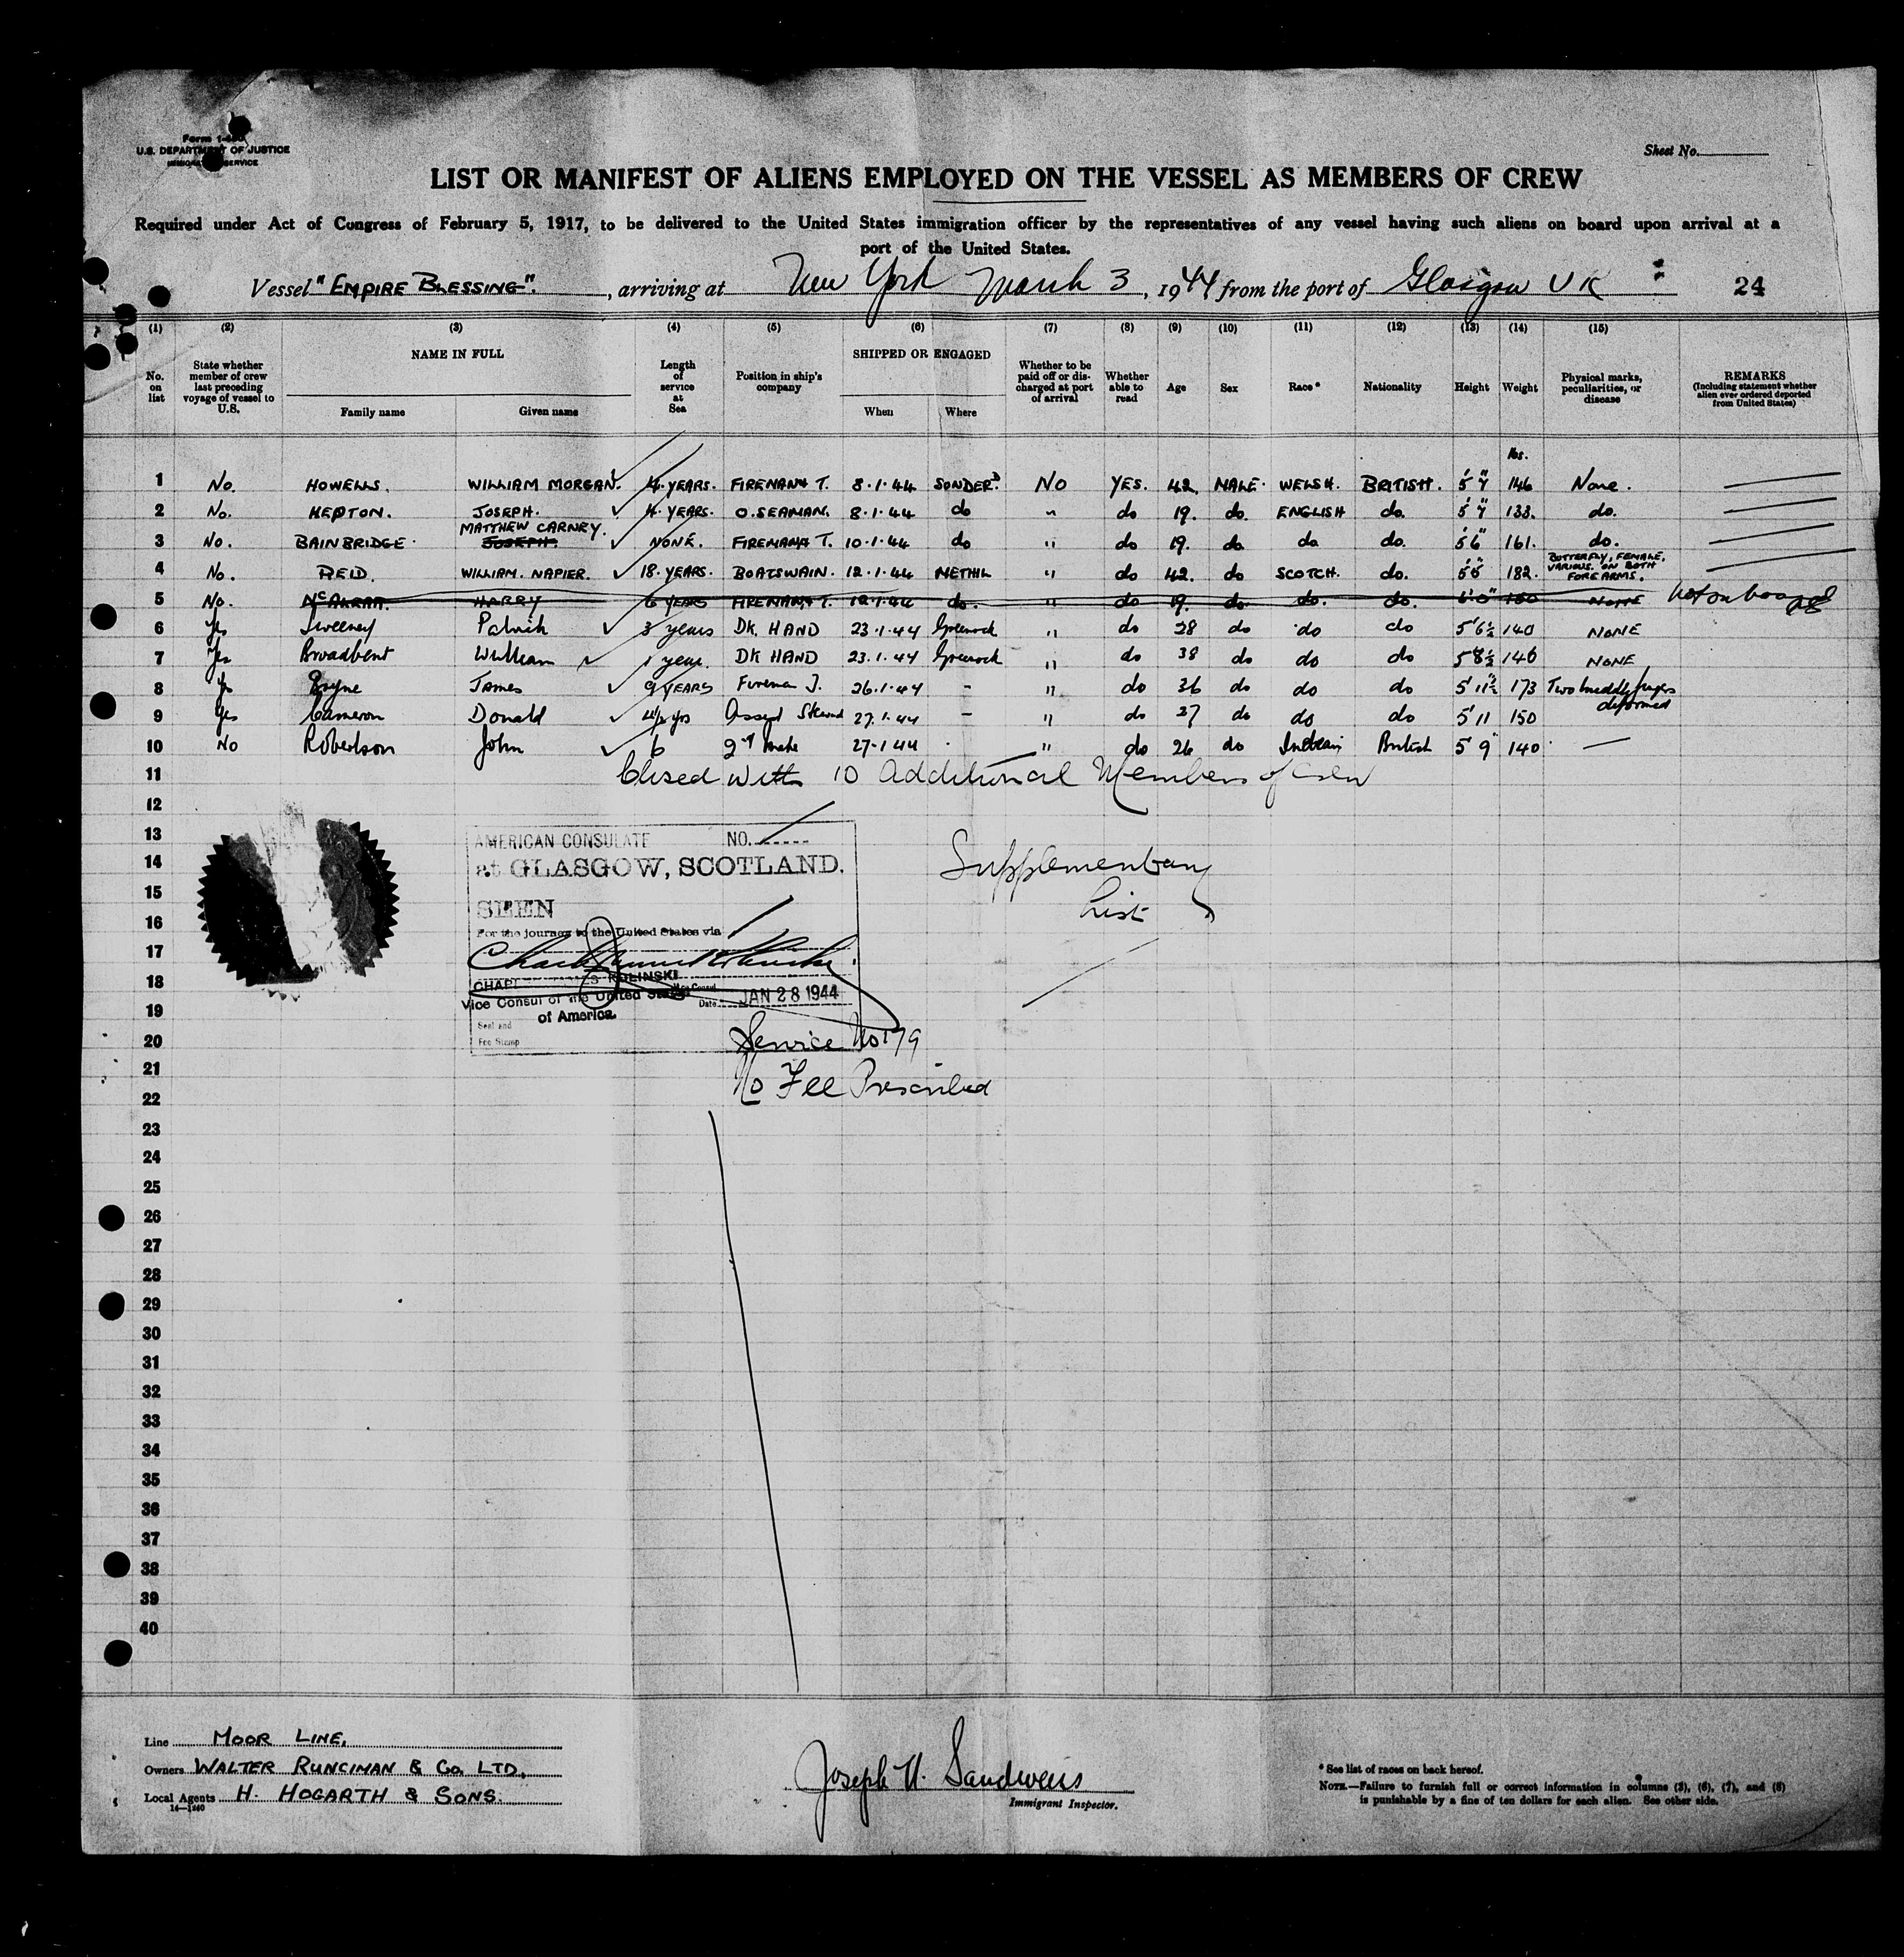 Form
U.S. DEPARTMENT OF JUSTICE
IMMIGRATION SERVICE
Sheet No.
LIST OR MANIFEST OF ALIENS EMPLOYED ON THE VESSEL AS MEMBERS OF CREW
Required under Act of Congress of February 5, 1917, to be delivered to the United States immigration officer by the representatives of any vessel having such aliens on board upon arrival at a
port of the United States.
Vessel "EMPIRE BLESSING". , arriving at New York March 3 , 1944 from the port of Glasgow UK 24
(1) (2) (3) (4) (5) (6) (7) (8) (9) (10) (11) (12) (13) (14) (15)
No. on list
State whether member of crew last preceding voyage of vessel to U.S.
NAME IN FULL
Family name Given name
Length of service at Sea
Position in ship's company
SHIPPED OR ENGAGED
When Where
Whether to be paid off or discharged at port of arrival
Whether able to read
Age
Sex
Race*
Nationality
Height
Weight
Physical marks, peculiarities, or disease
REMARKS
(Including statement whether alien ever ordered deported from United States)
lbs.
1 No. HOWELLS. WILLIAM MORGAN. 4. YEARS. FIREMAN & T. 8.1.44 SONDERD NO YES. 42. MALE. WELSH. BRITISH. 5'7" 146 None.
2 No. HEPTON. JOSEPH. 4. YEARS. O.SEAMAN. 8.1.44 do " do 19. do. ENGLISH do. 5'7" 133. do.
MATTHEW CARNEY.
3 No. BAINBRIDGE JOSEPH. NONE. FIREMAN & T. 10.1.44 do " do 19. do. do do. 5'6" 161. do.
4 No. REID. WILLIAM. NAPIER. 18. YEARS. BOATSWAIN. 12.1.44 METHIL " do 42. do SCOTCH. do. 5'6" 182. BUTTERFLY, FEMALE, VARIOUS. ON BOTH FOREARMS.
5 No. HARRY 6 YEARS FIREMAN & T. 12.1.44 do. " do 19. do do. do. NONE Not on board
6 Yes Sweeney Patrick 3 years DK. HAND 23.1.44 Greenock " do 28 do do do 5'6½ 140 NONE
7 Yes Broadbent William 1 year. DK HAND 23.1.44 Greenock " do 38 do do do 5 8½ 146 NONE
8 Yes Byrne James 9 YEARS Fireman T. 26.1.44 - " do 36 do do do 5'11½ 173 Two middle fingers deformed
9 Yes Cameron Donald 4½ yrs Steward 27.1.44 - " do 37 do do do 5'11 150
10 No Robertson John 6 2nd Mate 27.1.44 " do 26 do British 5'9" 140 —
11 Closed with 10 Additional Members of Crew
12
13
14
15
16
17
18
19
20
21
22
23
24
25
26
27
28
29
30
31
32
33
34
35
36
37
38
39
40
AMERICAN CONSULATE NO.
at GLASGOW, SCOTLAND.
SEEN
For the journey to the United States via
ROLINSKI
Vice Consul of the United States
of America.
Vice Consul
Date JAN 28 1944
Seal and
Fee Stamp
Service No 179
No Fee Prescribed
Supplementary
List
Line MOOR LINE,
Owners WALTER RUNCIMAN & Co. LTD,
Local Agents H. HOGARTH & SONS.
14—1240
Immigrant Inspector.
* See list of races on back hereof.
NOTE.—Failure to furnish full or correct information in columns (3), (6), (7), and (8)
is punishable by a fine of ten dollars for each alien. See other side.